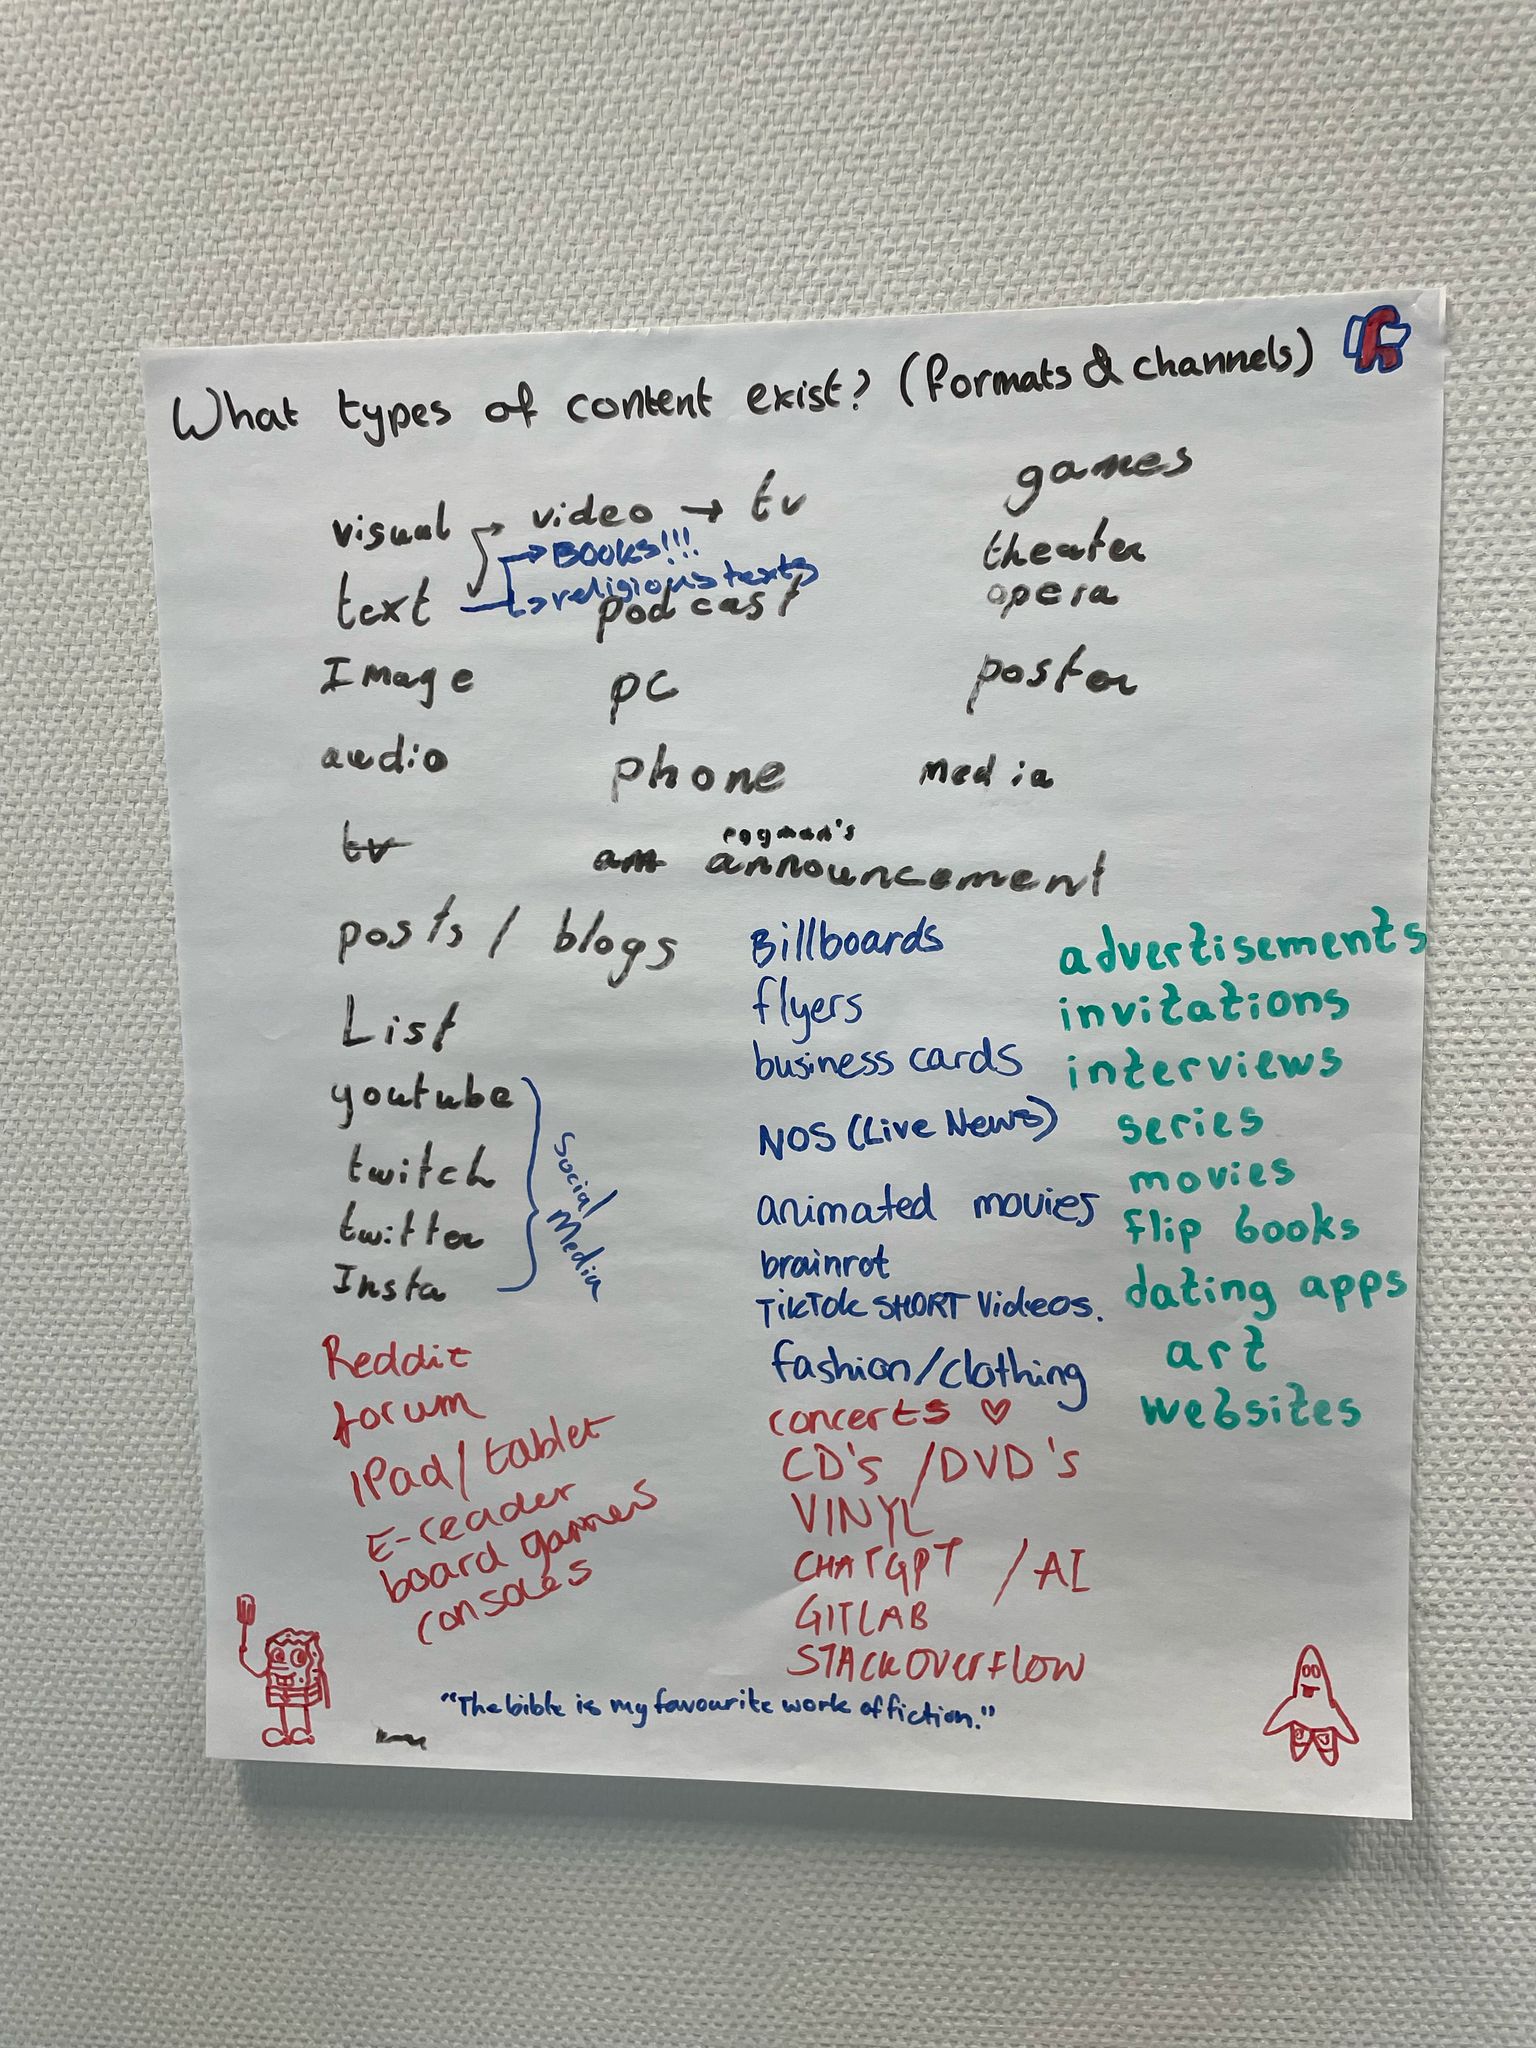 What types of content exist? (formats & channels)
visual → video → tv
→ BOOKS!!!
text → religious texts
podcast
Image
pc
audio
phone
tv
am eggman's
announcement
posts / blogs
List
youtube
twitch
twitter
Insta
Social Media
Reddit
forum
iPad/tablet
E-reader
board games
consoles
games
theater
opera
poster
media
Billboards
flyers
business cards
NOS (Live News)
animated movies
brainrot
TikTok SHORT Videos.
fashion/clothing
concerts ♡
CD's /DVD's
VINYL
CHATGPT / AI
GITLAB
STACKOVERFLOW
advertisements
invitations
interviews
series
movies
flip books
dating apps
art
websites
"The bible is my favourite work of fiction."